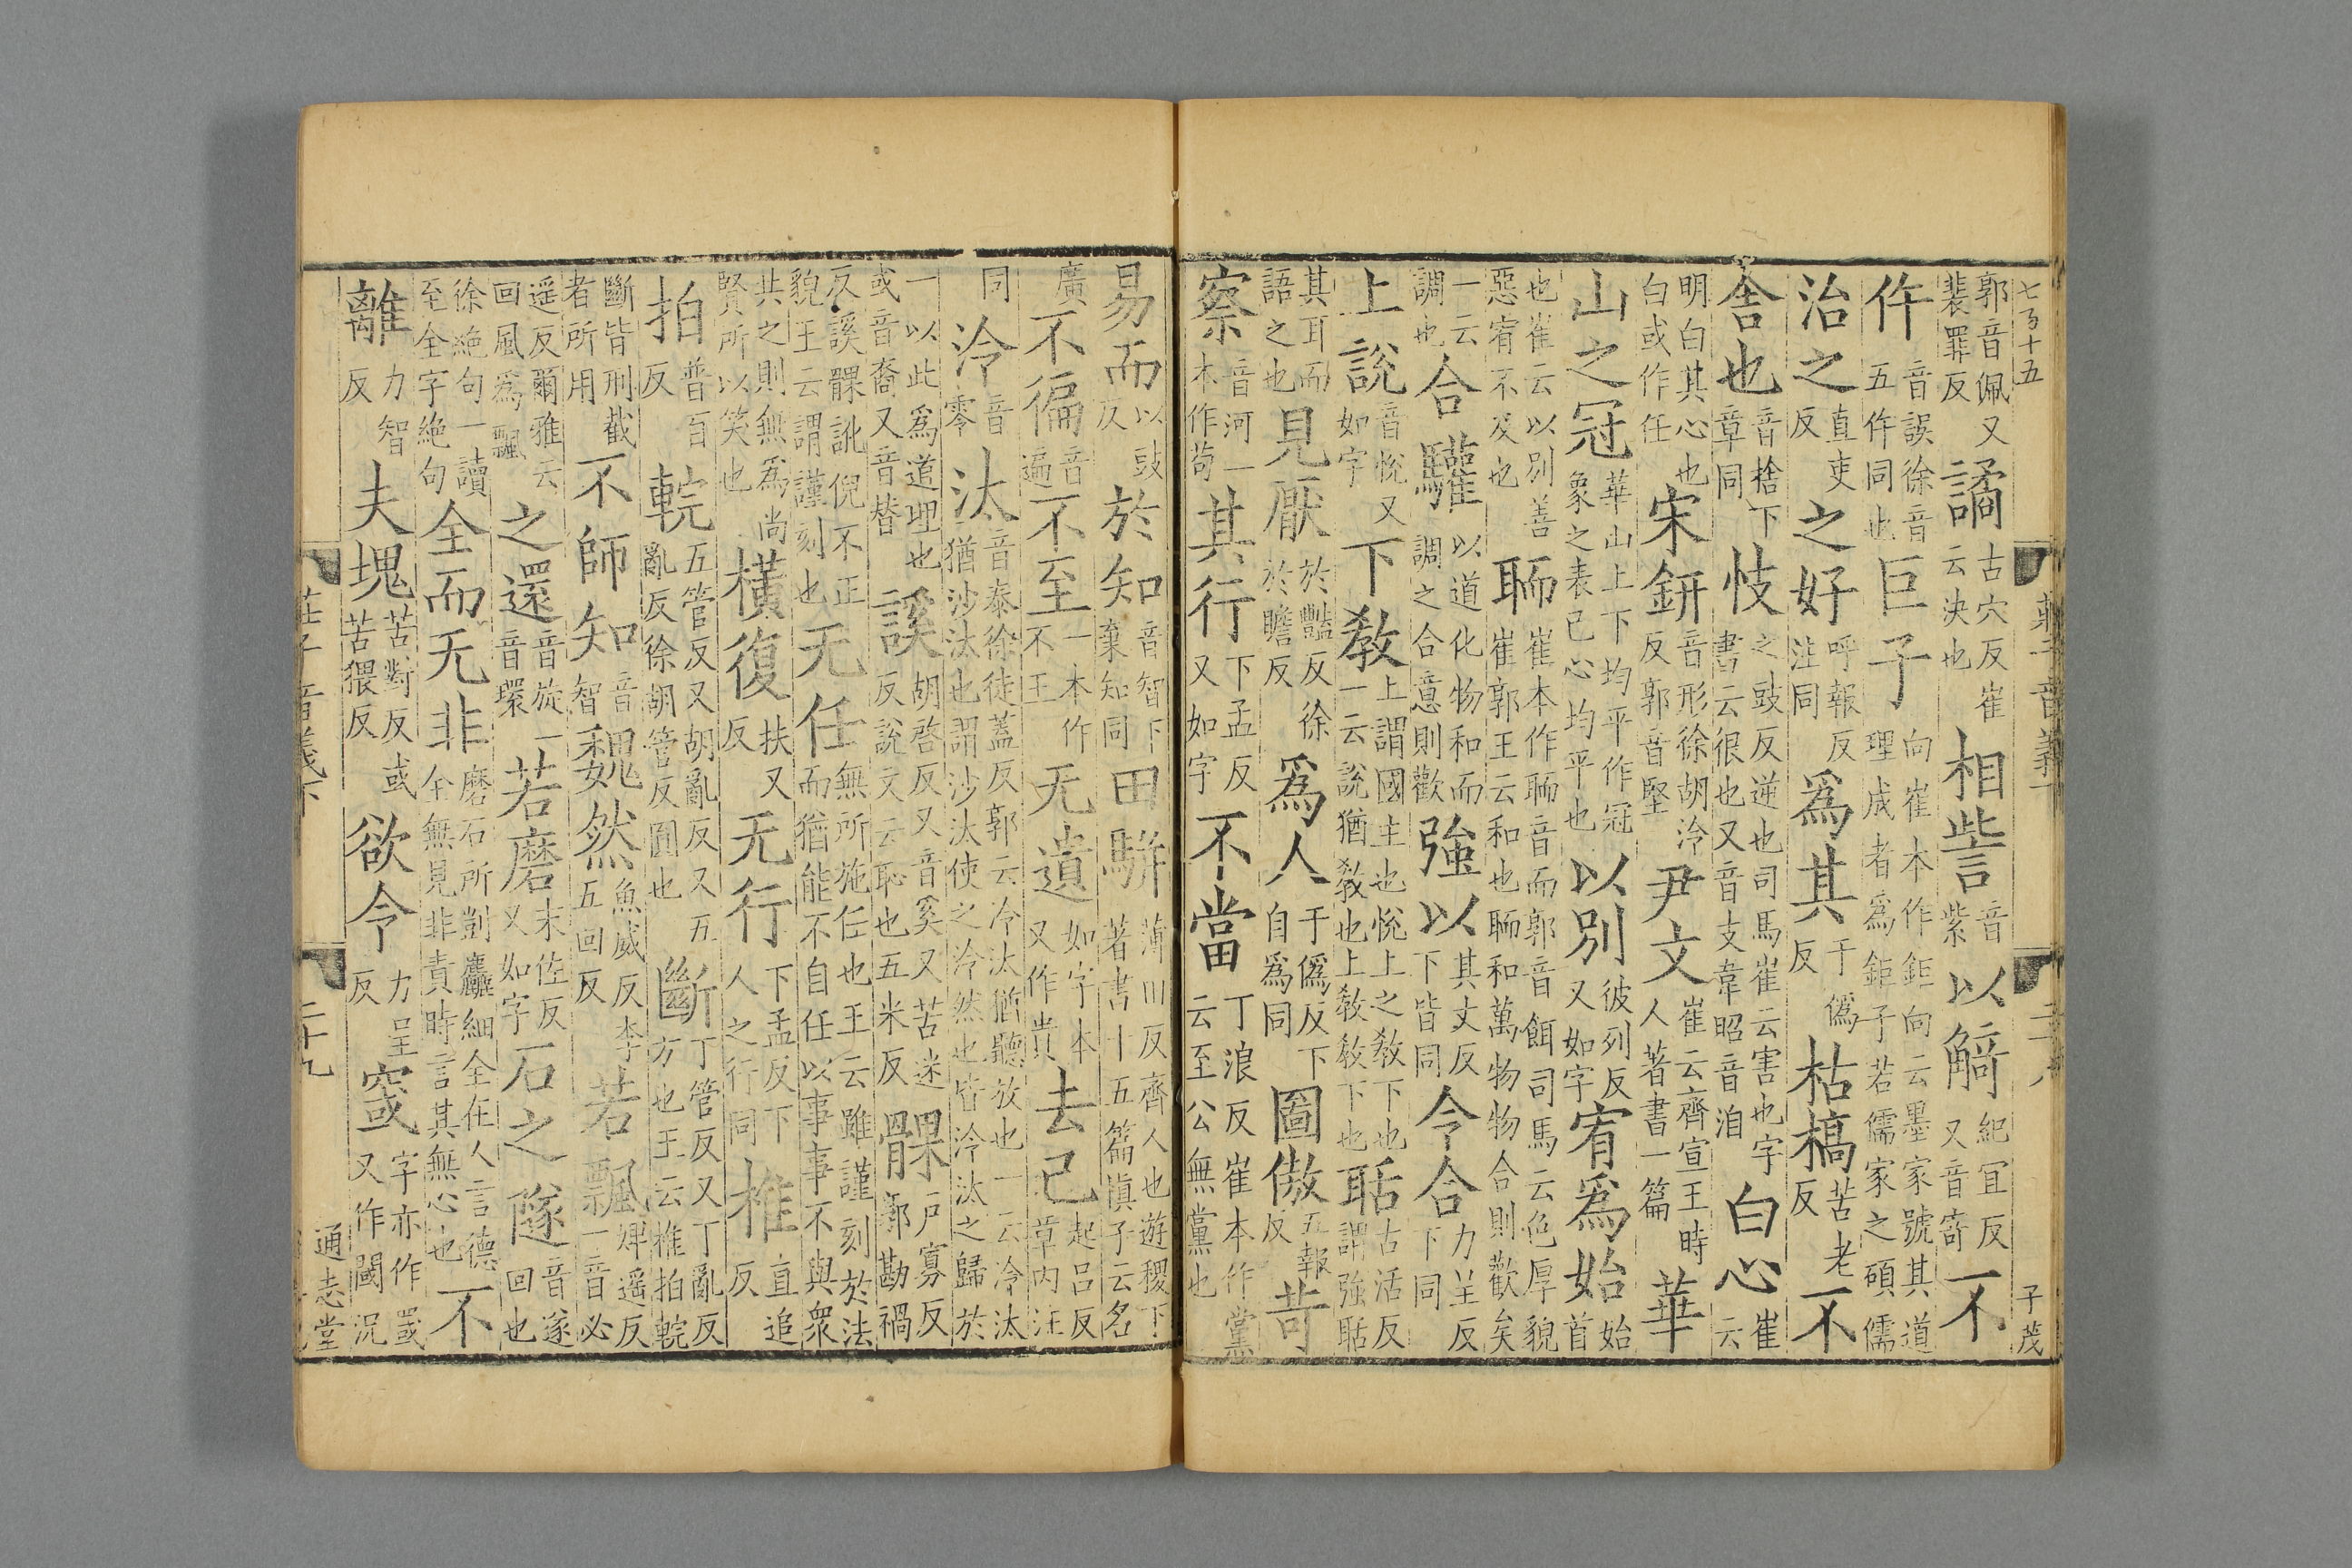 七百十五 莊子音義下 二十八 子茂
郭音佩又裴罪反 譎 古穴反崔云決也 相訾 音紫 以觭 紀宜反又音寄 不
仵 音誤徐音五仵同也 巨子 向崔本作鉅向云墨家號其道理成者爲鉅子若儒家之碩儒
治之 直吏反 之好 呼報反注同 爲其 于僞反 枯槁 苦老反 不
舍也 音捨下章同 忮 之豉反逆也司馬崔云害也字書云很也又音支韋昭音洎 白心 崔云
明白其心也白或作任 宋鈃 音形徐胡泠反郭音堅 尹文 崔云齊宣王時人著書一篇 華
山之冠 華山上下均平作冠象之表己心均平也 以別 彼列反又如字 宥爲始 始首
也崔云以別善惡宥不及也 聏 崔本作聏音而郭音餌司馬云色厚貌崔郭王云和也聏和萬物物合則歡矣
一云調也 合驩 以道化物和而調之合意則歡 強以 其丈反下皆同 令合 力呈反下同
上說 音悅又如字 下教 上謂國主也悅上之教下也一云說猶教也上教教下也 聒 古活反謂強聒
其耳而語之也 見厭 於豔反徐於瞻反 爲人 于僞反下自爲同 圖傲 五報反 苛
察 音河一本作苟 其行 下孟反又如字 不當 丁浪反崔本作黨云至公無黨也
易而 以豉反 於知 音智下棄知同 田駢 薄田反齊人也遊稷下著書十五篇愼子云名
廣 不徧 音遍 不至 一本作不王 无遺 如字本又作貴 去己 起呂反章內注
同 泠 音零 汰 音泰徐徒蓋反郭云泠汰猶聽放也一云泠汰猶沙汰也謂沙汰使之泠然也皆泠汰之歸於
一以此爲道理也或音裔又音替 謑 胡啓反又音奚又苦迷反說文云恥也五米反 髁 戶寡反郭勘禍
反謑髁訛倪不正貌王云謂謹刻也 无任 無所施任也王云雖謹刻於法而猶能不自任以事事不與衆
共之則無爲尚賢所以笑也 橫復 扶又反 无行 下孟反下人之行同 椎 直追反
拍 普百反 輐 五管反又胡亂反又五亂反徐胡管反圓也 斷 丁管反又丁亂反方也王云椎拍輐
斷皆刑截者所用 不師知 音智 魏然 魚威反李五回反 若飄 婢遥反一音必
遥反爾雅云回風爲飄 之還 音旋一音環 若磨 末佐反又如字 石之隧 音遂回也
徐絶句一讀至全字絶句 全而无非 磨石所剴麤細全在人言德全無見非責時言其無心也 不
離 力智反 夫塊 苦對反或苦猥反 欲令 力呈反 窢 字亦作䆭又作閾況
莊子音義下 二十九 通志堂